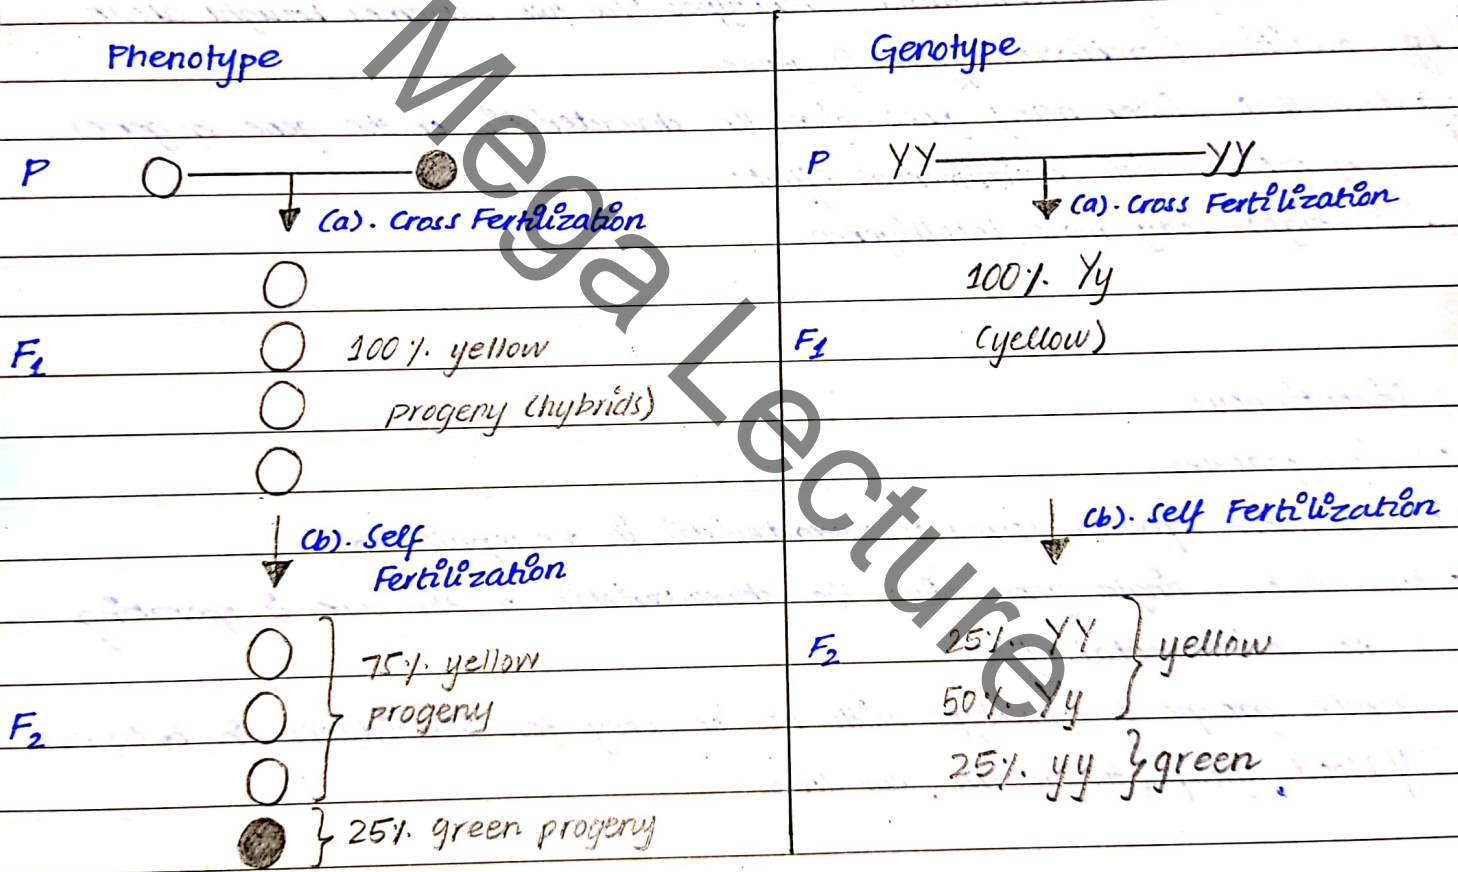 Phenotype
P
(a). Cross Fertilization
F1
100 %. yellow
progeny (hybrids)
(b). Self
Fertilization
F2
75%. yellow
progeny
25%. green progeny
Genotype
P YY yy
(a). Cross Fertilization
100%. Yy
F1 (yellow)
(b). Self Fertilization
F2 25%. YY yellow
50%. Yy
25%. yy green
Mega Lecture